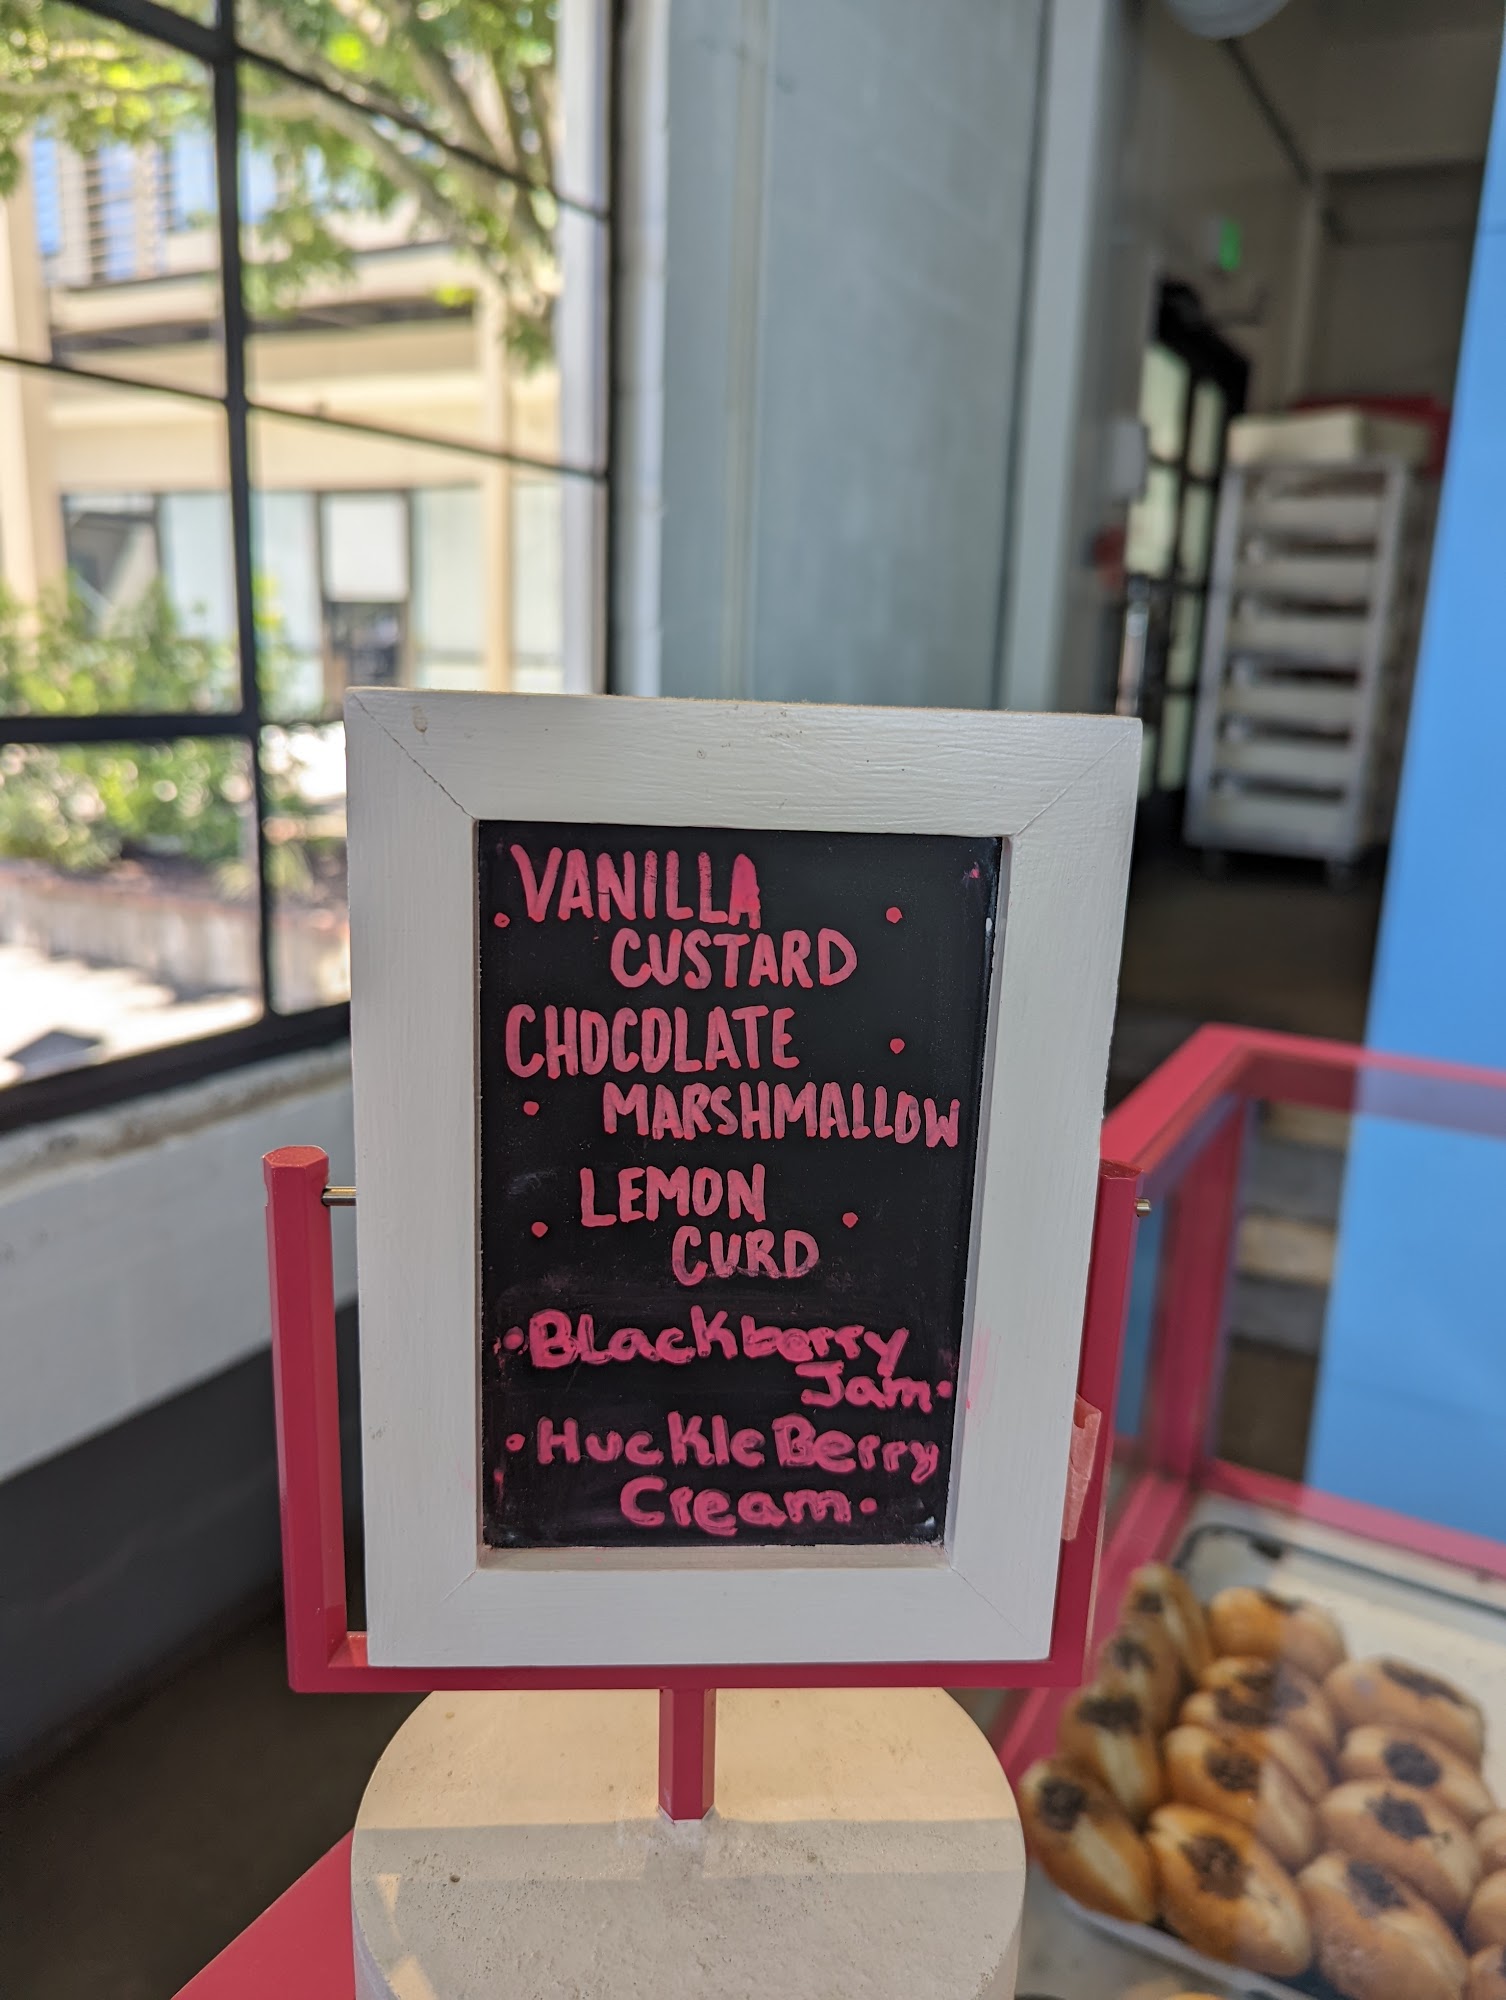 VANILLA
CUSTARD
CHOCOLATE
MARSHMALLOW
LEMON
CURD
BLackberry
Jam
HuckleBerry
Cream